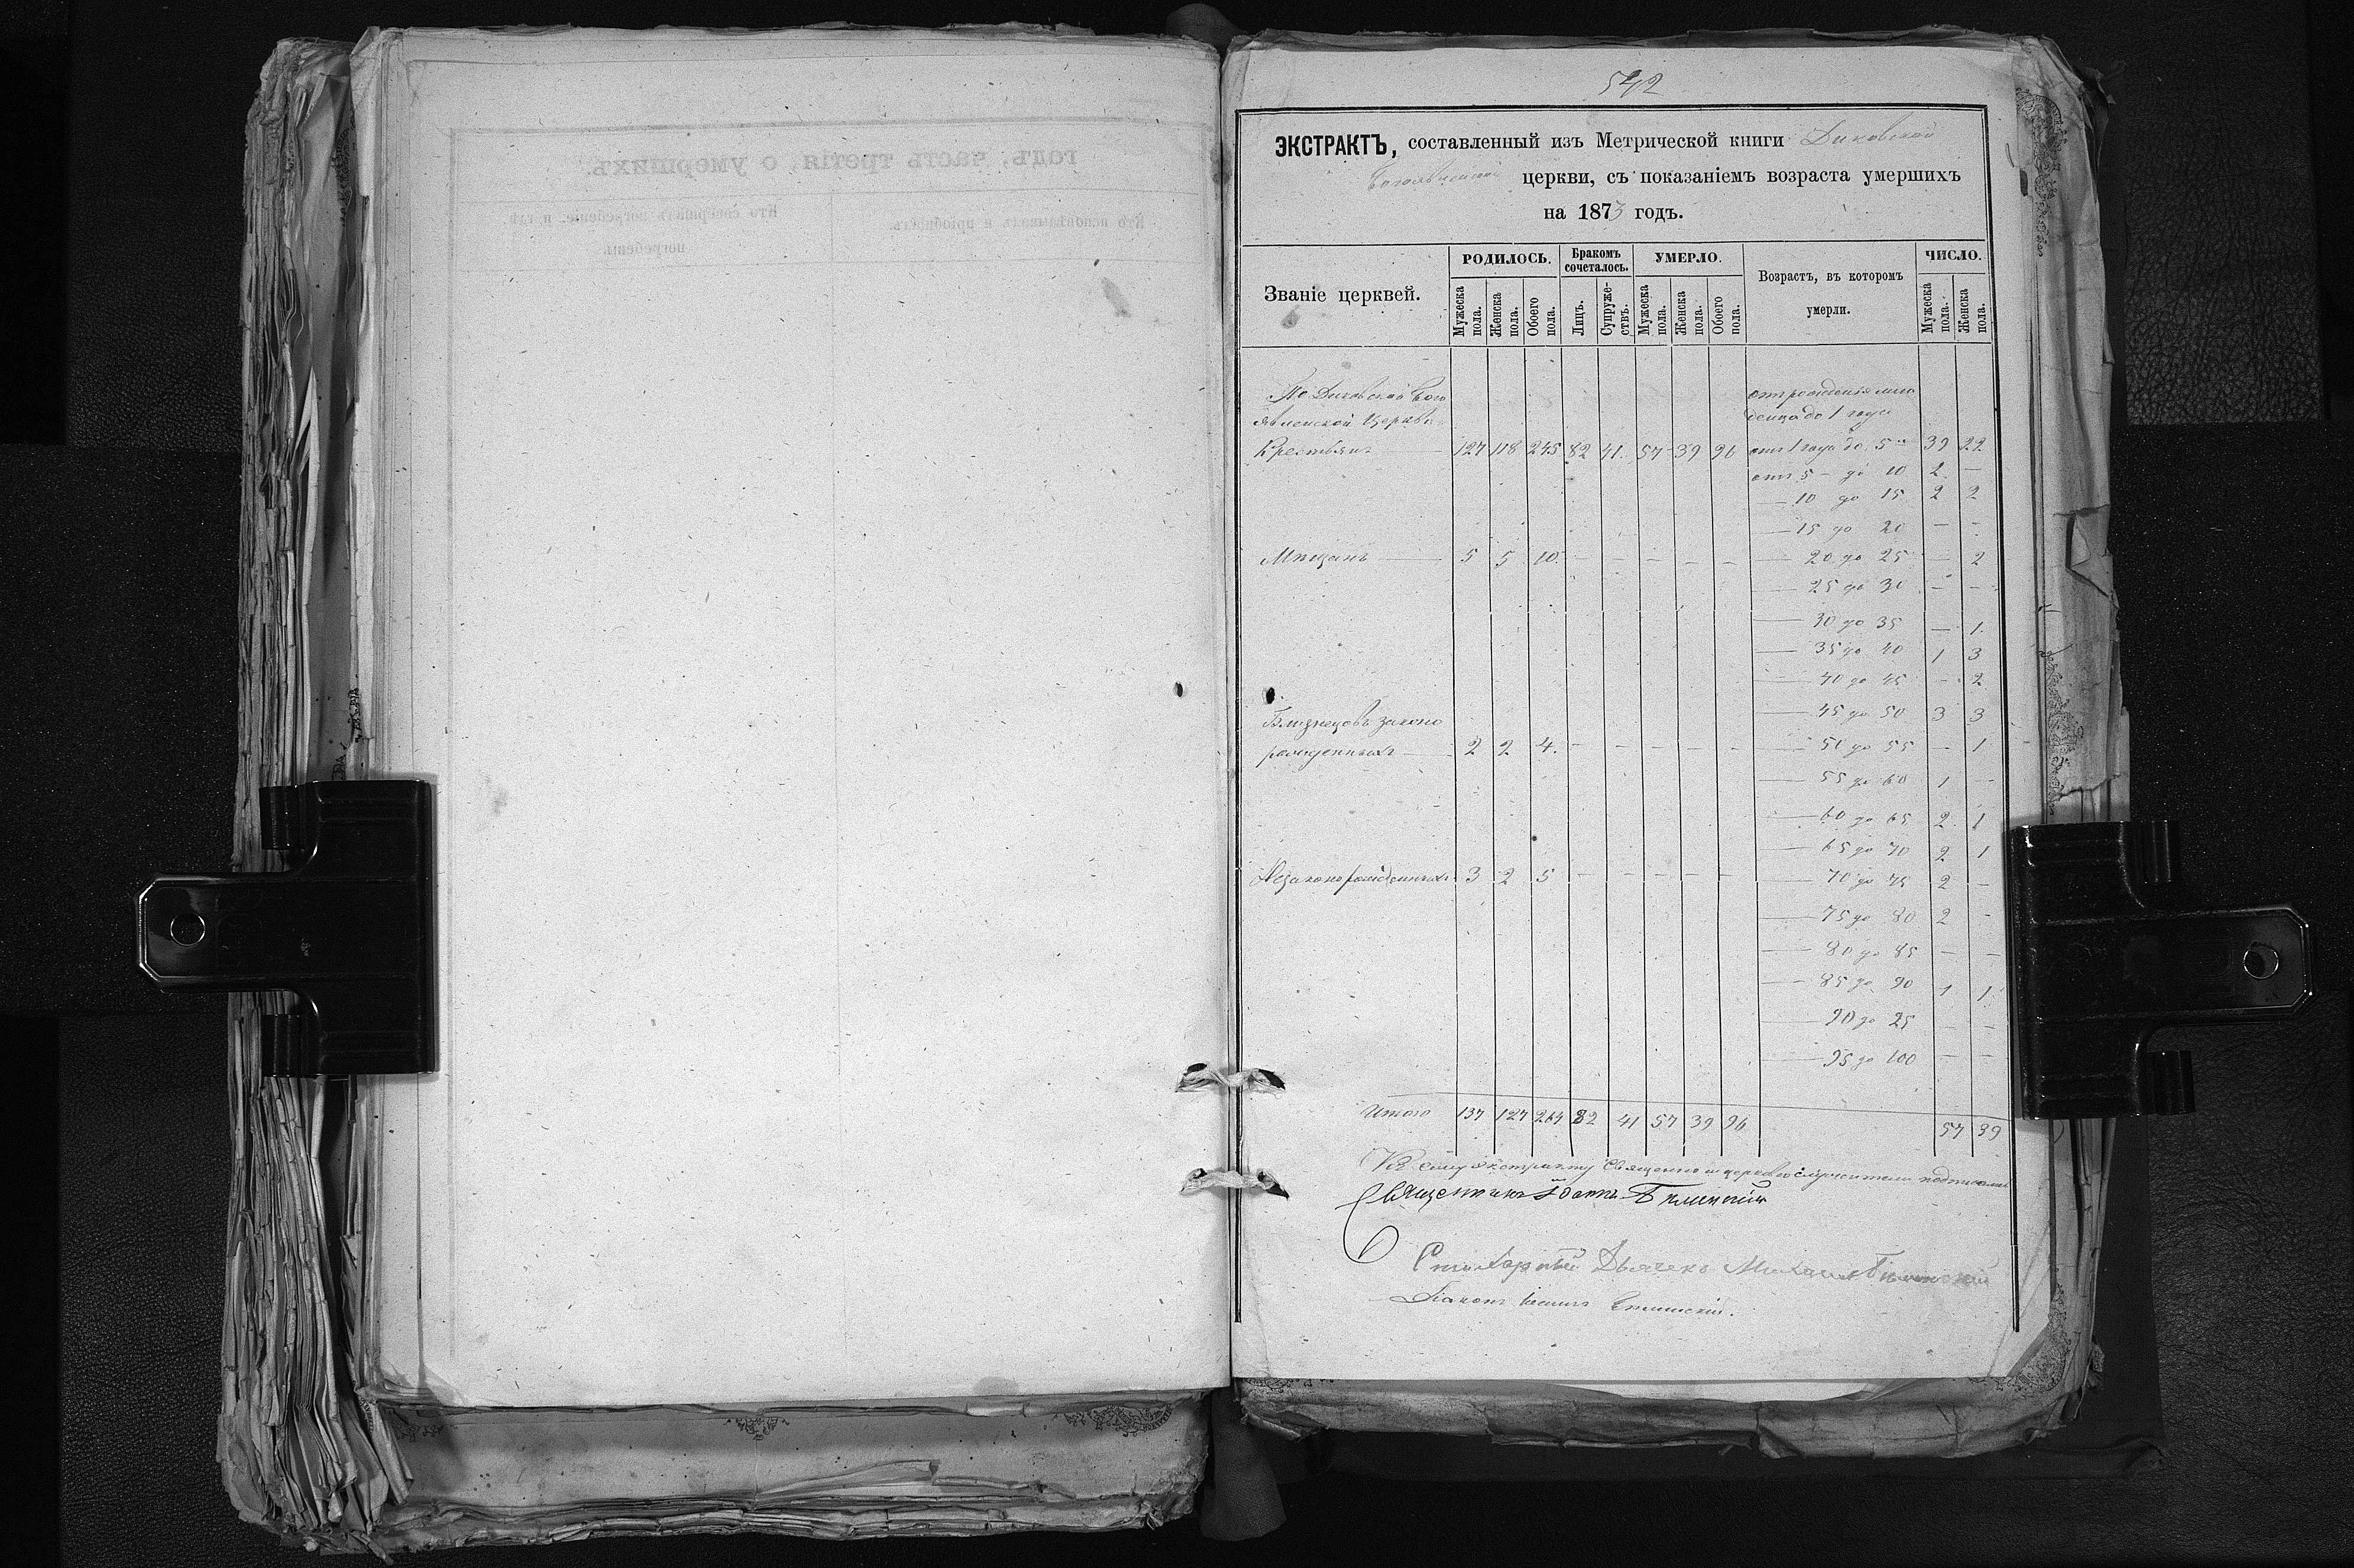 542
ЭКСТРАКТЪ, составленный изъ Метрической книги Диковской
Богоявленской церкви, съ показаніемъ возраста умершихъ
на 1873 годъ.
Званіе церквей.
РОДИЛОСЬ.
Мужеска пола.
Женска пола.
Обоего пола.
Бракомъ сочеталось.
Лицъ.
Супружествъ.
УМЕРЛО.
Мужеска пола.
Женска пола.
Обоего пола.
Возрастъ, въ которомъ
умерли.
ЧИСЛО.
Мужеска пола.
Женска пола.
По Диковской Бого
явленской Церкви
отъ рожденія мла
денца до 1 года
Крестьянъ 127 118 245 82 41. 57 39 96 отъ 1 года до 5 39 22
отъ 5 – до 10 2 –
10 до 15 2 2
15 до 20 – –
Мѣщанъ 5 5 10. – – – – – 20 до 25 – 2
25 до 30 – –
30 до 35 – 1.
35 до 40 1 3
40 до 45 – 2
Близнецовъ законо 45 до 50 3 3
рожденныхъ 2 2 4. – – – – – 50 до 55 – 1
55 до 60 1 –
60 до 65 2 1
65 до 70 2 1
Незаконорожденныхъ 3 2 5 – – – – – 70 до 75 2 –
75 до 80 2 –
80 до 85 – –
85 до 90 1 1
90 до 95 – –
95 до 100 – –
Итого 137 127 264 82 41 57 39 96 57 39
Къ сему экстракту Священно и церковнослужители подписались
Священникъ Іоаннъ
Дьячекъ Михаилъ